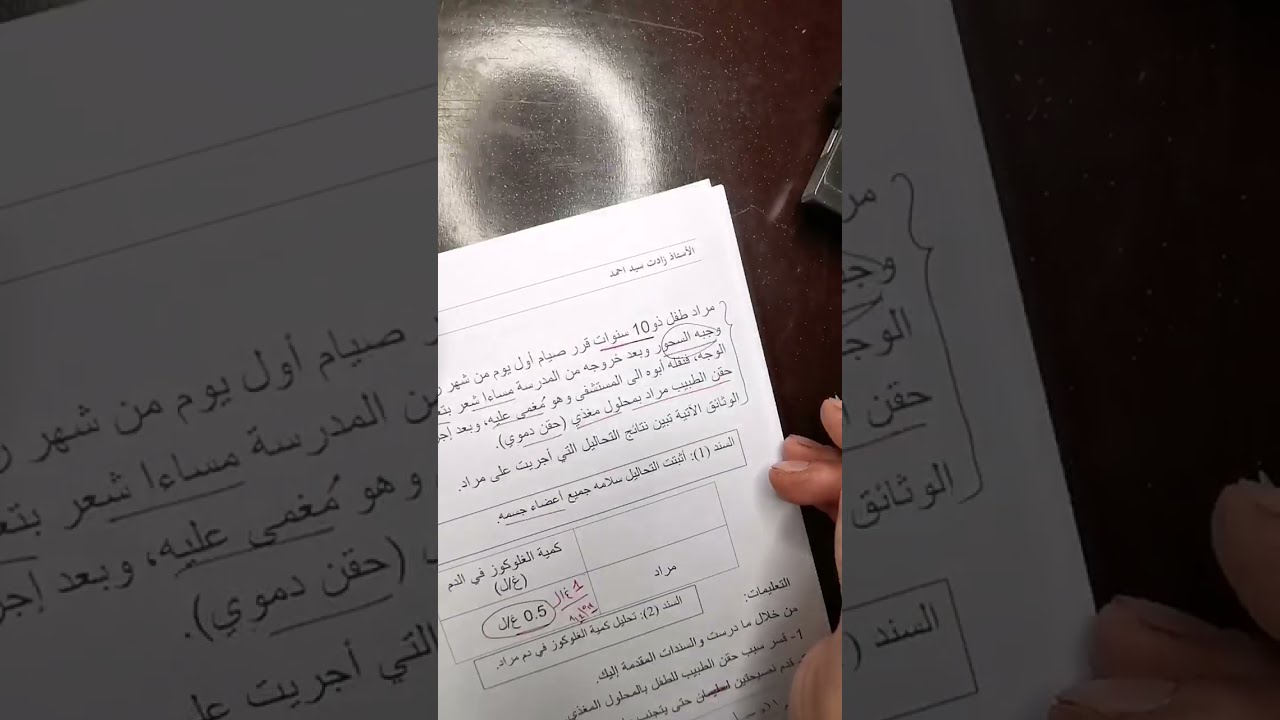 الأستاذ زادت سيد احمد
مراد طفل ذو 10 سنوات قرر صيام أول يوم من شهر
وجبه السحور وبعد خروجه من المدرسة مساءا شعر
الوجه، فنقله أبوه الى المستشفى وهو مُغمى عليه، وبعد
حقن الطبيب مراد بمحلول مغذي (حقن دموي).
الوثائق الآتية تبين نتائج التحاليل التي أجريت على مراد.
السند (1): أثبتت التحاليل سلامه جميع اعضاء جسمه.
كمية الغلوكوز في الدم
(غ/ل)
مراد
0.5 غ/ل
1 غ/ل
السند (2): تحليل كمية الغلوكوز في دم مراد.
التعليمات:
من خلال ما درست والسندات المقدمة إليك.
1- فسر سبب حقن الطبيب للطفل بالمحلول المغذي
قدم نصيحتين لسليمان حتى يتجنب